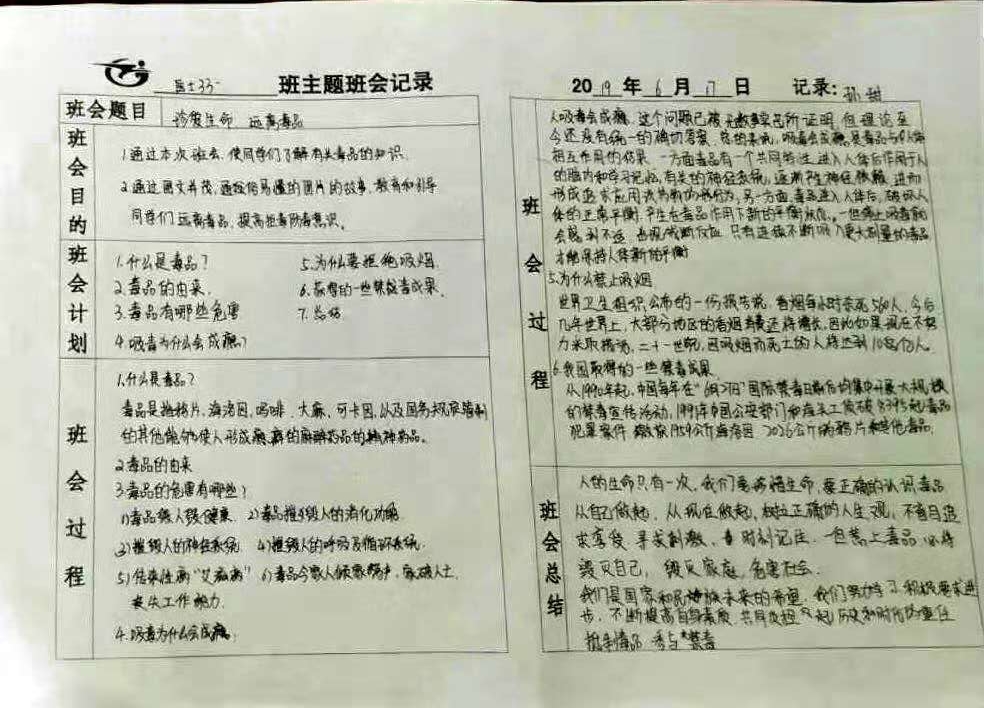 班主题班会记录
2019年6月17日 记录: 孙甜
班会题目
珍爱生命 远离毒品
班会目的
1.通过本次班会,使同学们了解有关毒品的知识.
2.通过图文并茂,通俗易懂的图片的故事,教育和引导
同学们远离毒品,提高拒毒防毒意识.
班会计划
1.什么是毒品?
2.毒品的由来.
3.毒品有哪些危害
4.吸毒为什么会成瘾?
5.为什么要拒绝吸烟.
6.获得的一些禁毒成果.
7.总结
班会过程
1.什么是毒品?
毒品是指鸦片、海洛因、吗啡、大麻、可卡因,以及国务规定管制
的其他能够使人形成瘾癖的麻醉药品的精神药品。
2.毒品的由来
3.毒品的危害有哪些?
1)毒品毁人毁健康. 2)毒品摧毁人的消化功能
3)摧毁人的神经系统. 4)摧毁人的呼吸及循环系统.
5)传染性病"艾滋病" 6)毒品令家人倾家荡产,家破人亡.
丧失工作能力.
4.吸毒为什么会成瘾:
班会过程
人吸毒会成瘾,这个问题已被无数事实所证明,但理论至
今还没有统一的确切答案.总的来说,吸毒会成瘾是毒品与人体
相互作用的结果.一方面毒品有一个共同特性,进入人体后作用于人
的脑内和学习记忆有关的神经系统,逐渐产生神经依赖,进而
形成追求应用该药的行为;另一方面,毒品进入人体后,破坏人
体的正常平衡,产生在毒品作用下新的平衡状态.一但停止吸毒就
会感到不适,出现戒断反应,只有连续不断吸入更大剂量的毒品
才能保持人体新的平衡
5.为什么禁止吸烟
世界卫生组织公布的一份报告说,香烟每小时杀死560人,今后
几年世界上,大部分地区的香烟消费还将增长,因此如果现在不努
力采取措施,二十一世纪,因吸烟而死亡的人将达到10亿人.
6.我国取得的一些禁毒成果
从1990年起,中国每年在"6月26日"国际禁毒日前后均集中开展大规模
的禁毒宣传活动,1991年中国公安部门和海关工侦破8395起毒品
犯罪案件,缴获1959公斤海洛因,2026公斤鸦片和其他毒品.
班会总结
人的生命只有一次,我们要珍惜生命,要正确的认识毒品
从自己做起,从现在做起,树立正确的人生观,不盲目追
求享受,寻求刺激,时刻记住,一但染上毒品,必将
毁灭自己,毁灭家庭,危害社会.
我们是国家和民族未来的希望,我们要努力学习,积极要求进
步,不断提高自身素质,共同负担起历史和时代的重任
参与禁毒